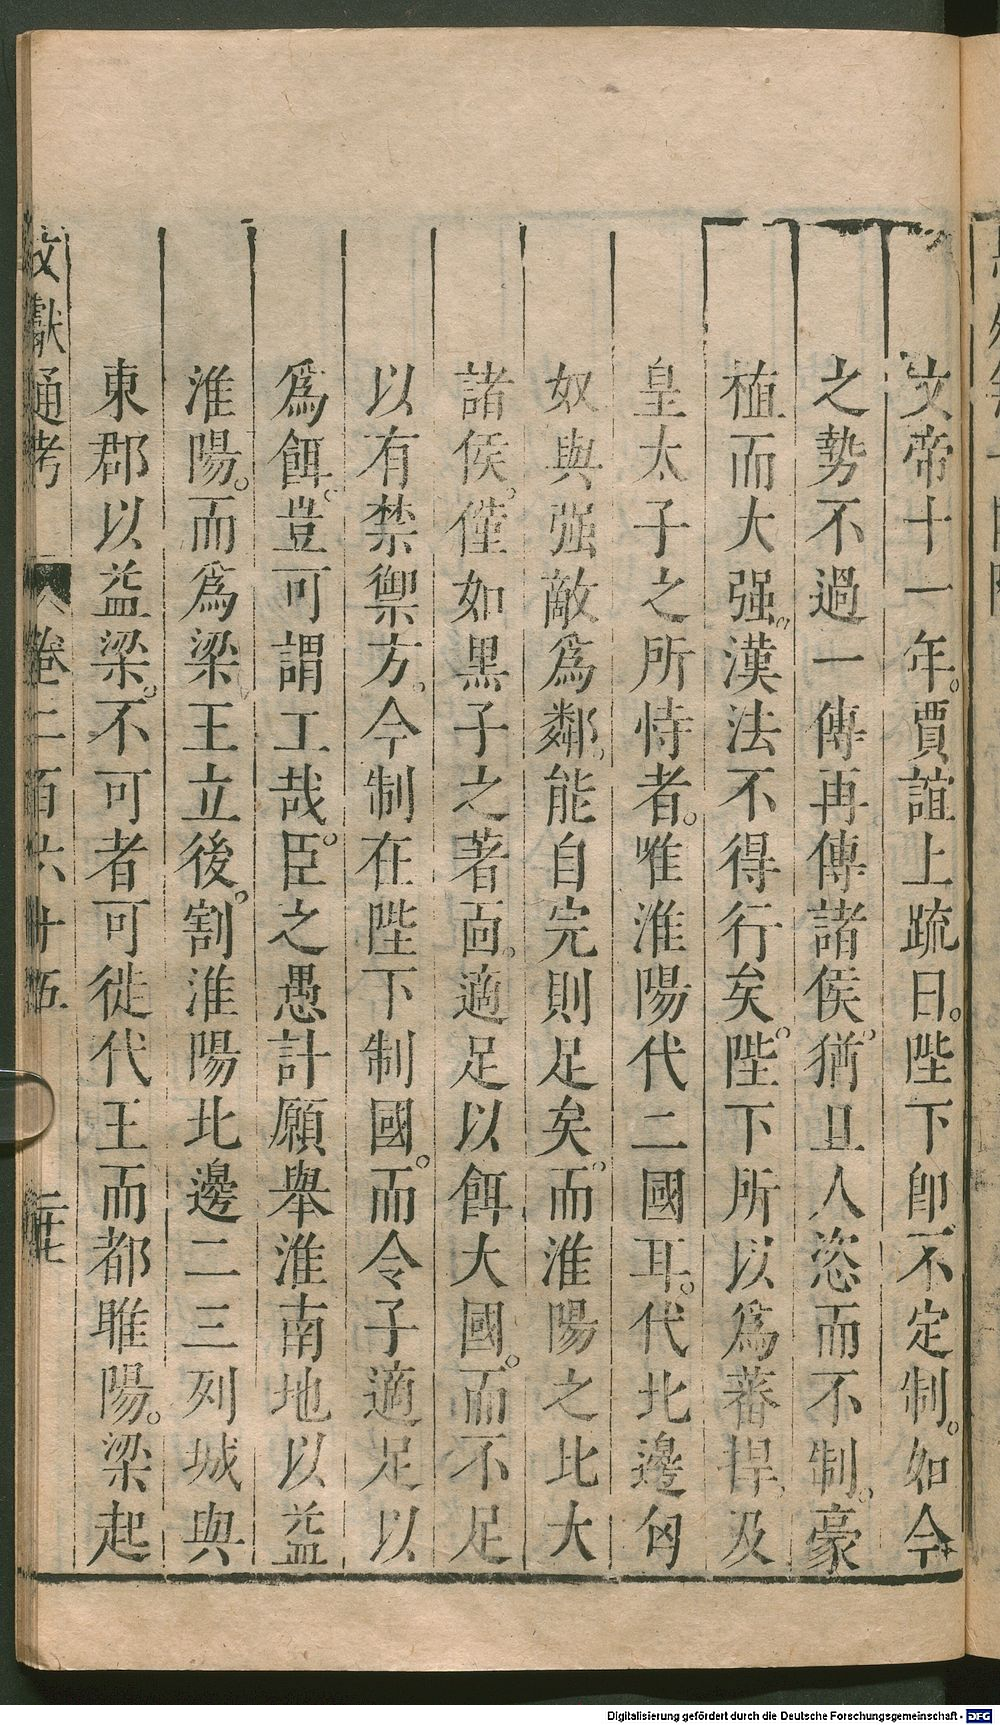 文帝十一年。賈誼上疏曰。陛下即不定制。如今
之勢不過一傳再傳諸侯。猶且人恣而不制。豪
植而大强。漢法不得行矣。陛下所以爲蕃捍。及
皇太子之所恃者。唯淮陽代二國耳。代北邊匈
奴與强敵爲鄰。能自完則足矣。而淮陽之比大
諸侯。僅如黑子之著面。適足以餌大國。而不足
以有禁禦方。今制在陛下制國。而令子適足以
爲餌。豈可謂工哉。臣之愚計願舉淮南地以益
淮陽。而爲梁王立後。割淮陽北邊二三列城與
東郡以益梁。不可者可徙代王而都睢陽。梁起
文獻通考 卷二百六十五 二十七
Digitalisierung gefördert durch die Deutsche Forschungsgemeinschaft - DFG